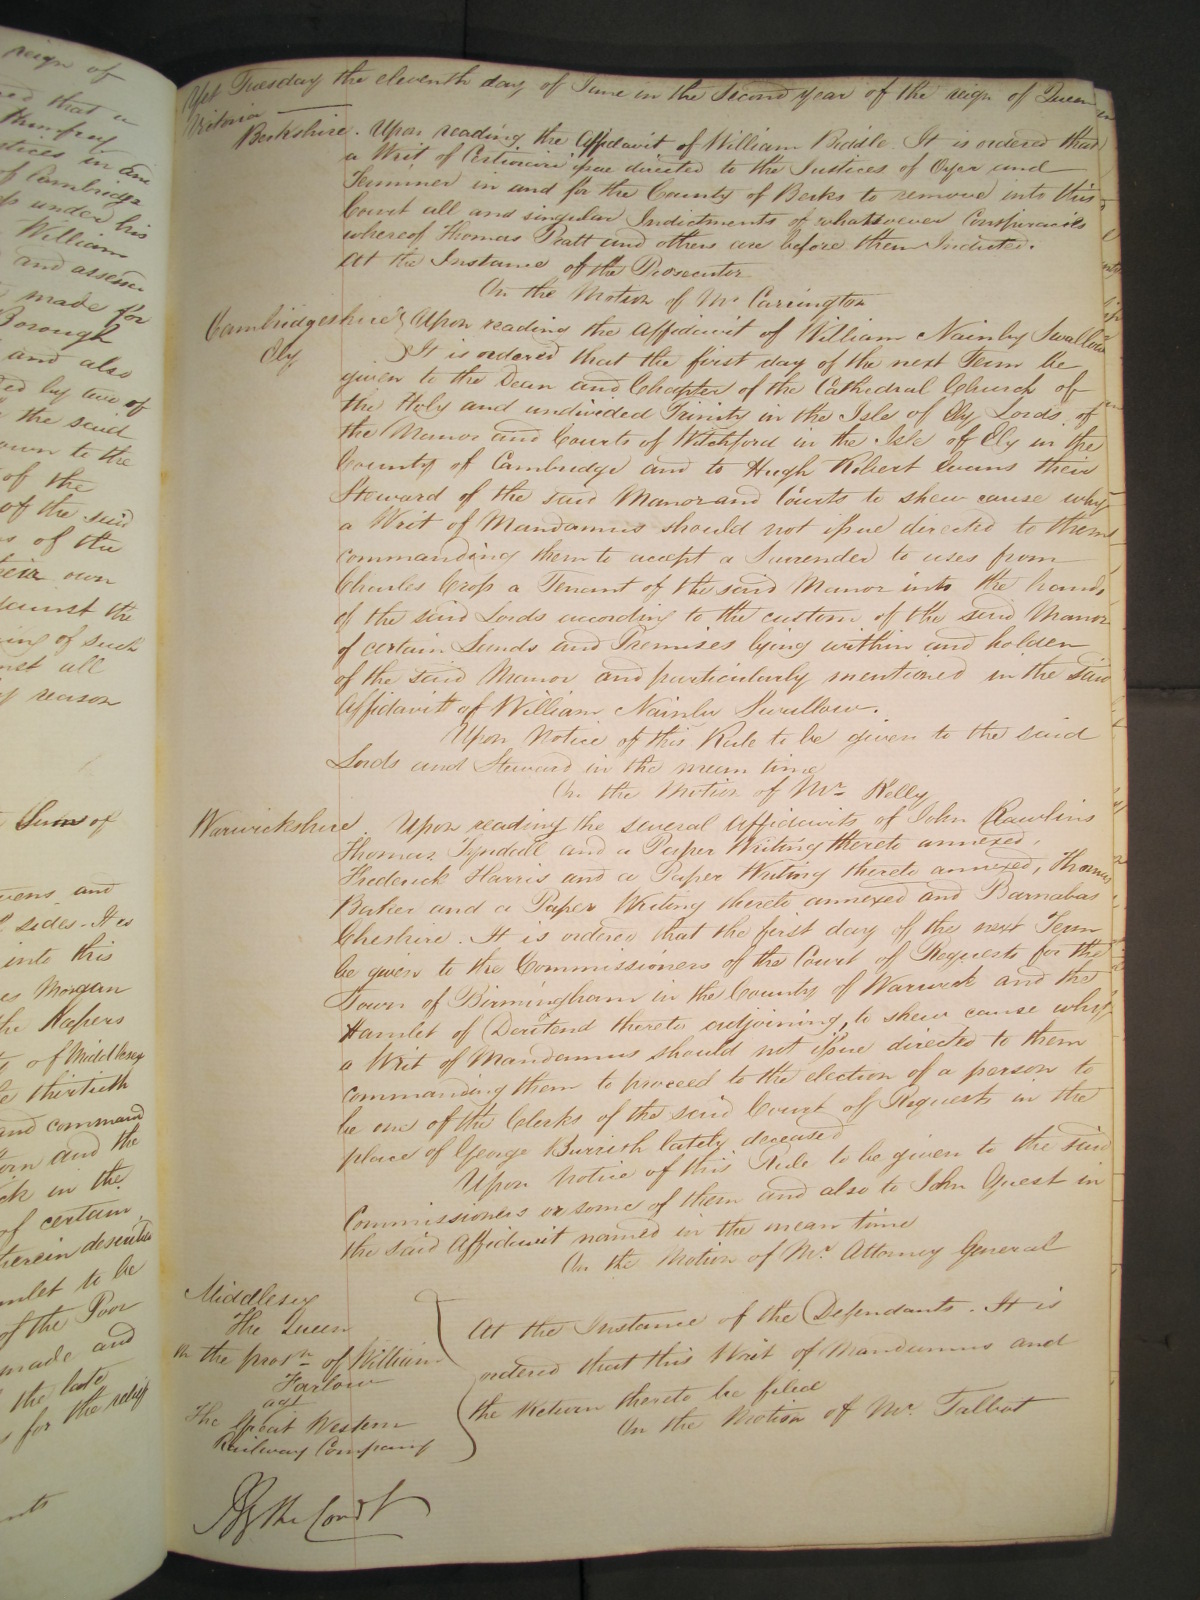 reign of
ed that a
Humfrey
stices in and
of Cambridge
up under his
William
and assess
made for
Borough
and also
ed by one of
the said
own to the
of the
of the said
s of the
their own
against the
ing of such
nst all
reason
Sums of
vens and
sides - It is
into this
es Morgan
the Keepers
of Middlesex
the thirtieth
and command
orn and the
ck in the
of certain
therein described
mlet to be
of the Poor
made and
the late
s for the relief
Yet Tuesday the eleventh day of June in the Second year of the reign of Queen
Victoria
Berkshire. Upon reading the Affidavit of William Biddle It is ordered that
a Writ of Certiorari issue directed to the Justices of Oyer and
Terminer in and for the County of Berks to remove into this
Court all and singular Indictments of whatsoever Conspiracies
whereof Thomas Pratt and others are before them Indicted.
At the Instance of the Prosecutor
On the Motion of Mr Carrington
Cambridgeshire } Upon reading the Affidavit of William Nainby Swallow
Ely } It is ordered that the first day of the next Term be
given to the Dean and Chapter of the Cathedral Church of
the Holy and undivided Trinity in the Isle of Ely Lords of
the Manor and Courts of Witchford in the Isle of Ely in the
County of Cambridge and to Hugh Robert Evans their
Steward of the said Manor and Courts to shew cause why
a Writ of Mandamus should not issue directed to them
commanding them to accept a Surrender to uses from
Charles Cross a Tenant of the said Manor into the hands
of the said Lords according to the custom of the said Manor
of certain Lands and Premises lying within and holden
of the said Manor and particularly mentioned in the said
Affidavit of William Nainby Swallow.
Upon Notice of this Rule to be given to the said
Lords and Steward in the mean time
On the Motion of Mr Kelly
Warwickshire. Upon reading the several Affidavits of John Rawlins
Thomas Tyndall and a Paper Writing thereto annexed,
Frederick Harris and a Paper Writing thereto annexed, Thomas
Baker and a Paper Writing thereto annexed and Barnabas
Cheshire. It is ordered that the first day of the next Term
be given to the Commissioners of the Court of Requests for the
Town of Birmingham in the County of Warwick and the
Hamlet of Deritend thereto adjoining, to shew cause why
a Writ of Mandamus should not issue directed to them
commanding them to proceed to the election of a person to
be one of the Clerks of the said Court of Requests in the
place of George Burrish lately deceased
Upon Notice of this Rule to be given to the said
Commissioners or some of them and also to John Guest in
the said Affidavit named in the mean time
On the Motion of Mr Attorney General
Middlesex
The Queen
on the prosn of William
Farlow
agt
The Great Western
Railway Company
At the Instance of the Defendants. It is
ordered that this Writ of Mandamus and
the Return thereto be filed
On the Motion of Mr Talbot
By the Court